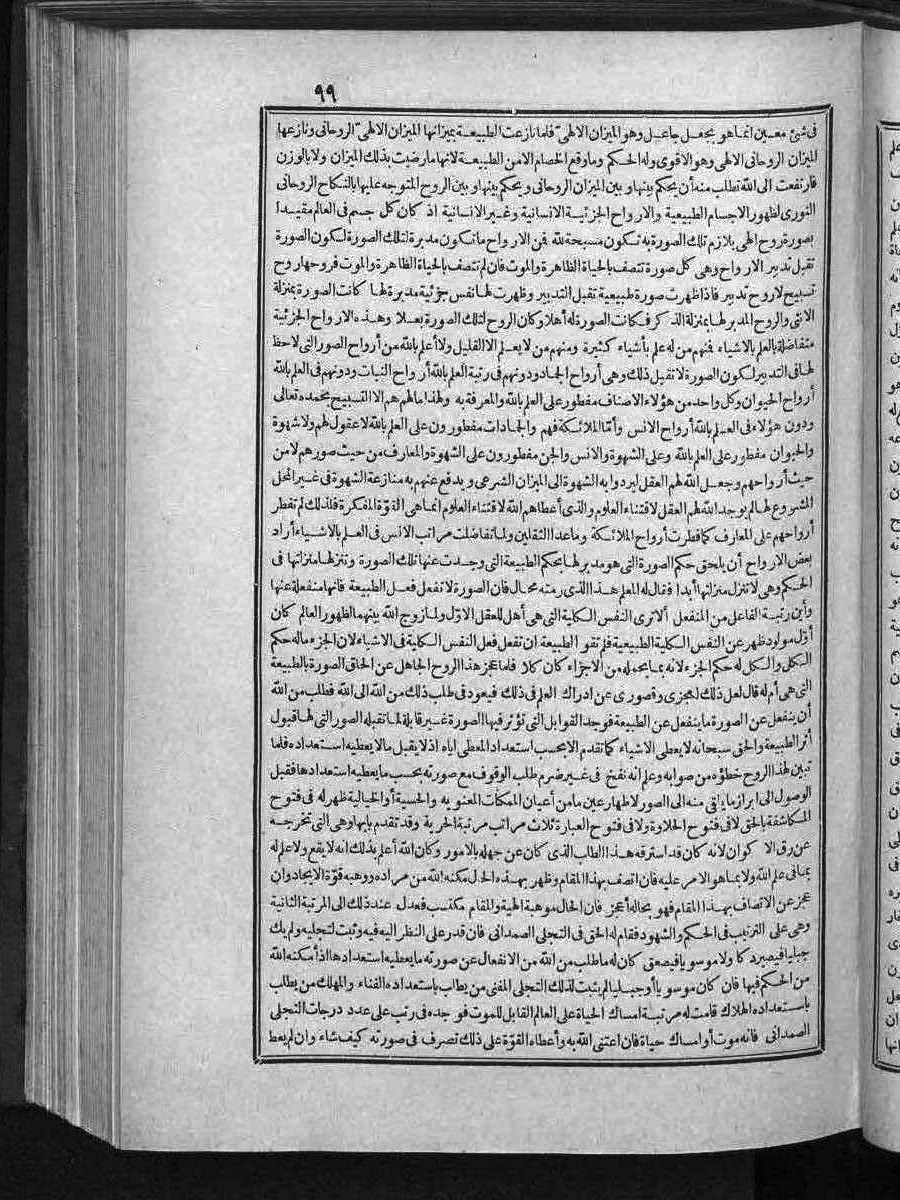 ٩٩
فى شئ معين انما هو بجعل جاعل وهو الميزان الالهى فلما نازعت الطبيعة بميزانها الميزان الالهى الروحانى ونازعها
الميزان الروحانى الالهى وهو الاقوى وله الحكم وما وقع الخصام الا من الطبيعة لانها ما رضيت بذلك الميزان ولا بالوزن
فارتفعت الى الله تطلب منه أن يحكم بينها وبين الميزان الروحانى ويحكم بينها وبين الروح المتوجه عليها بالنكاح الروحانى
النورى لظهور الاجسام الطبيعية والارواح الجزئية الانسانية وغير الانسانية اذ كان كل جسم فى العالم مقيدا
بصورة روح الهى يلازم تلك الصورة به تكون مسبحة لله فمن الارواح ما تكون مدبرة لتلك الصورة لكون الصورة
تقبل تدبير الارواح وهى كل صورة تتصف بالحياة الظاهرة والموت فان لم تتصف بالحياة الظاهرة والموت فروحها روح
تسبيح لا روح تدبير فاذا ظهرت صورة طبيعية تقبل التدبير وظهرت لها نفس جزئية مدبرة لها كانت الصورة بمنزلة
الانثى والروح المدبر لها بمنزلة الذكر فكانت الصورة له أهلا وكان الروح لتلك الصورة بعلا وهذه الارواح الجزئية
متفاضلة بالعلم بالاشياء فنهم من له علم بأشياء كثيرة ومنهم من لا يعلم الا القليل ولا أعلم بالله من أرواح الصور التى لا حظ
لها فى التدبير لكون الصورة لا تقبل ذلك وهى أرواح الجماد ودونهم فى رتبة العلم بالله أرواح النبات ودونهم فى العلم بالله
أرواح الحيوان وكل واحد من هؤلاء الاصناف مفطور على العلم بالله والمعرفة به ولهذا ما لهم هم الا التسبيح بحمده تعالى
ودون هؤلاء فى العلم بالله أرواح الانس وأما الملائكة فهم والجمادات مفطورون على العلم بالله لا عقول لهم ولا شهوة
والحيوان مفطور على العلم بالله وعلى الشهوة والانس والجن مفطورون على الشهوة والمعارف من حيث صورهم لا من
حيث أرواحهم وجعل الله لهم العقل ليردوا به الشهوة الى الميزان الشرعى ويدفع عنهم به منازعة الشهوة فى غير المحل
المشروع لها لم يوجد الله لهم العقل لاقتناء العلوم والذى أعطاهم الله لاقتناء العلوم انما هى القوة المفكرة فلذلك لم تفطر
أرواحهم على المعارف كما فطرت أرواح الملائكة وما عدا الثقلين ولما تفاضلت مراتب الانس فى العلم بالاشياء أراد
بعض الارواح أن يلحق حكم الصورة التى هو مدبر لها بحكم الطبيعة التى وجدت عنها تلك الصورة وتنزلها منزلتها فى
الحكم وهى لا تنزل منزلتها أبدا فقال له المعلم هذا الذى رمته محال فان الصورة لا تفعل فعل الطبيعة فانها منفعلة عنها
وأين رتبة الفاعل من المنفعل ألا ترى النفس الكلية التى هى أهل للعقل الاول ولما زوج الله بينهما لظهور العالم كان
أول مولود ظهر عن النفس الكلية الطبيعية فلم تقو الطبيعة ان تفعل فعل النفس الكلية فى الاشياء لان الجزء ما له حكم
الكل والكل له حكم الجزء لانه بما يحمله من الاجزاء كان كلا فلما عجز هذا الروح الجاهل عن الحاق الصورة بالطبيعة
التى هى أم له قال لعل ذلك لعجزى وقصورى عن ادراك العلم فى ذلك فيعود فى طلب ذلك من الله الى الله فطلب من الله
أن ينفعل عن الصورة ما ينفعل عن الطبيعة فوجد القوابل التى تؤثر فيها الصورة غير قابلة لما تقبله الصور التى لها قبول
أثر الطبيعة والحق سبحانه لا يعطى الاشياء كما تقدم الا بحسب استعداد المعطى اياه اذ لا يقبل ما لا يعطيه استعداده فلما
تبين لهذا الروح خطؤه من صوابه وعلم انه نفخ فى غير ضرم طلب الوقوف مع صورته بحسب ما يعطيه استعدادها فقيل
الوصول الى ابراز ما يلقى منه الى الصور لاظهار عين ما من أعيان الممكنات المعنوية والحسية أو الخيالية ظهر له فى فتوح
المكاشفة بالحق لا فى فتوح الحلاوة ولا فى فتوح العبارة ثلاث مراتب مرتبة الحرية وقد تقدم بابها وهى التى تخرجه
عن رق الاكوان لانه كان قد استرقه هذا الطلب الذى كان عن جهله بالامور وكان الله أعلم بذلك انه لا يقع ولا علم له
بما فى علم الله ولا بما هو الامر عليه فان اتصف بهذا المقام وظهر بهذه الحال مكنه الله من مراده ووهبه قوة الايجاد وان
عجز عن الاتصاف بهذا المقام فهو بحاله أعجز فان الحال موهبة الهية والمقام مكتسب فعدل عند ذلك الى المرتبة الثانية
وهى على الترتيب فى الحكم والشهود فقام له الحق فى التجلى الصمدانى فان قدر على النظر اليه فيه وثبت لتجليه ولم يك
جبليا فيصير دكا ولا موسويا فيصعق كان له ما طلب من الله من الانفعال عن صورته ما يعطيه استعدادها اذ أمكنه الله
من الحكم فيها فان كان موسويا أو جبليا لم يثبت لذلك التجلى المفنى من يطلب باستعداده الفناء والمهلك من يطلب
باستعداده الهلاك قامت له مرتبة امساك الحياة على العالم القابل للموت فوجده فى رتب على عدد درجات التجلى
الصمدانى فانه موت أو امساك حياة فان اعتنى الله به وأعطاه القوة على ذلك تصرف فى صورته كيف شاء وان لم يعط